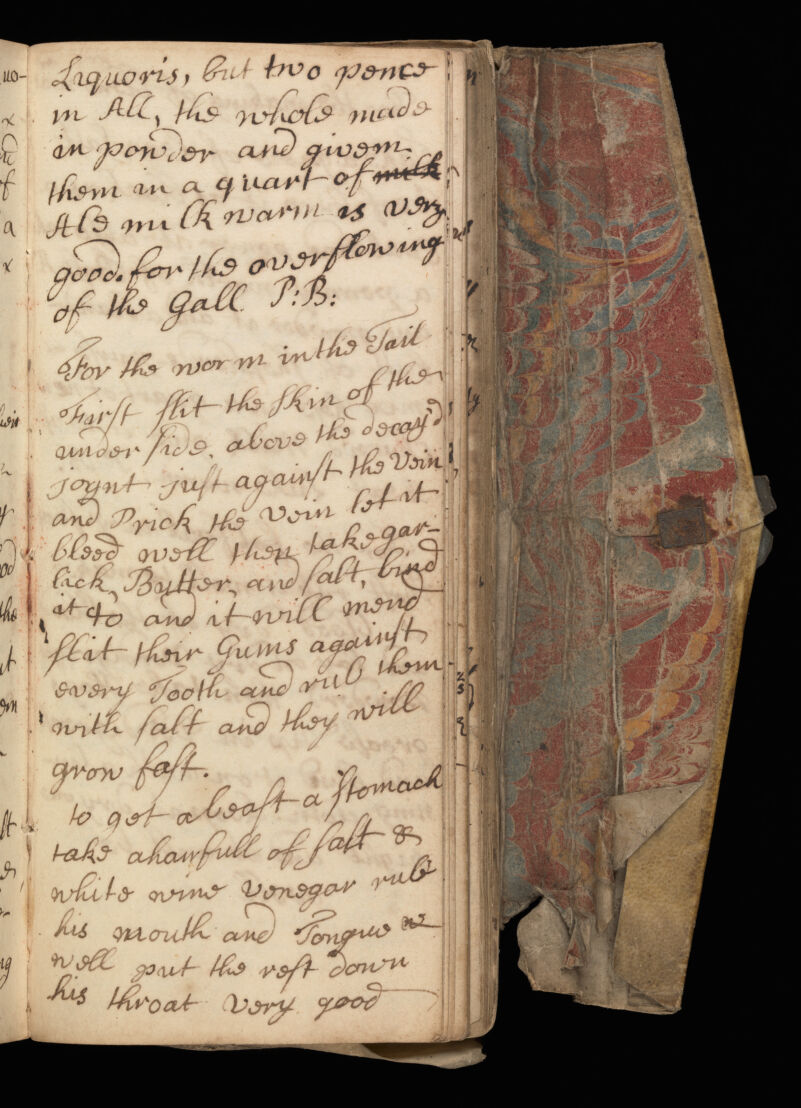 Liquoris, but two pence
in All, the whole made
in powder and givem
them in a quart of milk
Ale milk warm is very
good. for the overflowing
of the Gall P:B:
For the worm in the Tail
First slit the skin of the
under side, above the decay'd
joynt just against the Vein
and Prick the vein let it
bleed well then take gar-
lick, Butter, and salt, bind
it to and it will mend
slit their Gums against
every Tooth and rub them
with salt and they will
grow fast.
to get a beast a stomach
take a hanfull of salt &
white wine venegar rub
his mouth and Tongue
well put the rest down
his throat very good